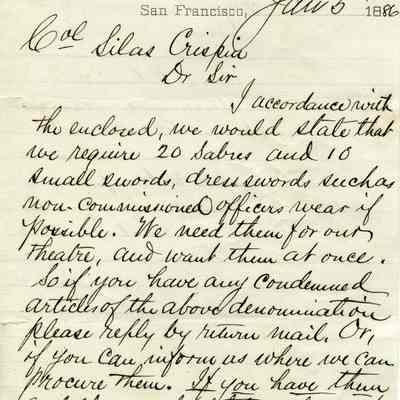 San Francisco, Jan 5 1886
Col Silas Crispin
Dr Sir
I accordance with
the enclosed, we would state that
we require 20 Sabres and 10
small swords, dress swords such as
non-Commissioned officers wear if
possible. We need them for our
theatre, and want them at once.
So if you have any Condemned
articles of the above denomination
please reply by return mail. Or,
if you can, inform us where we can
procure them. If you have them